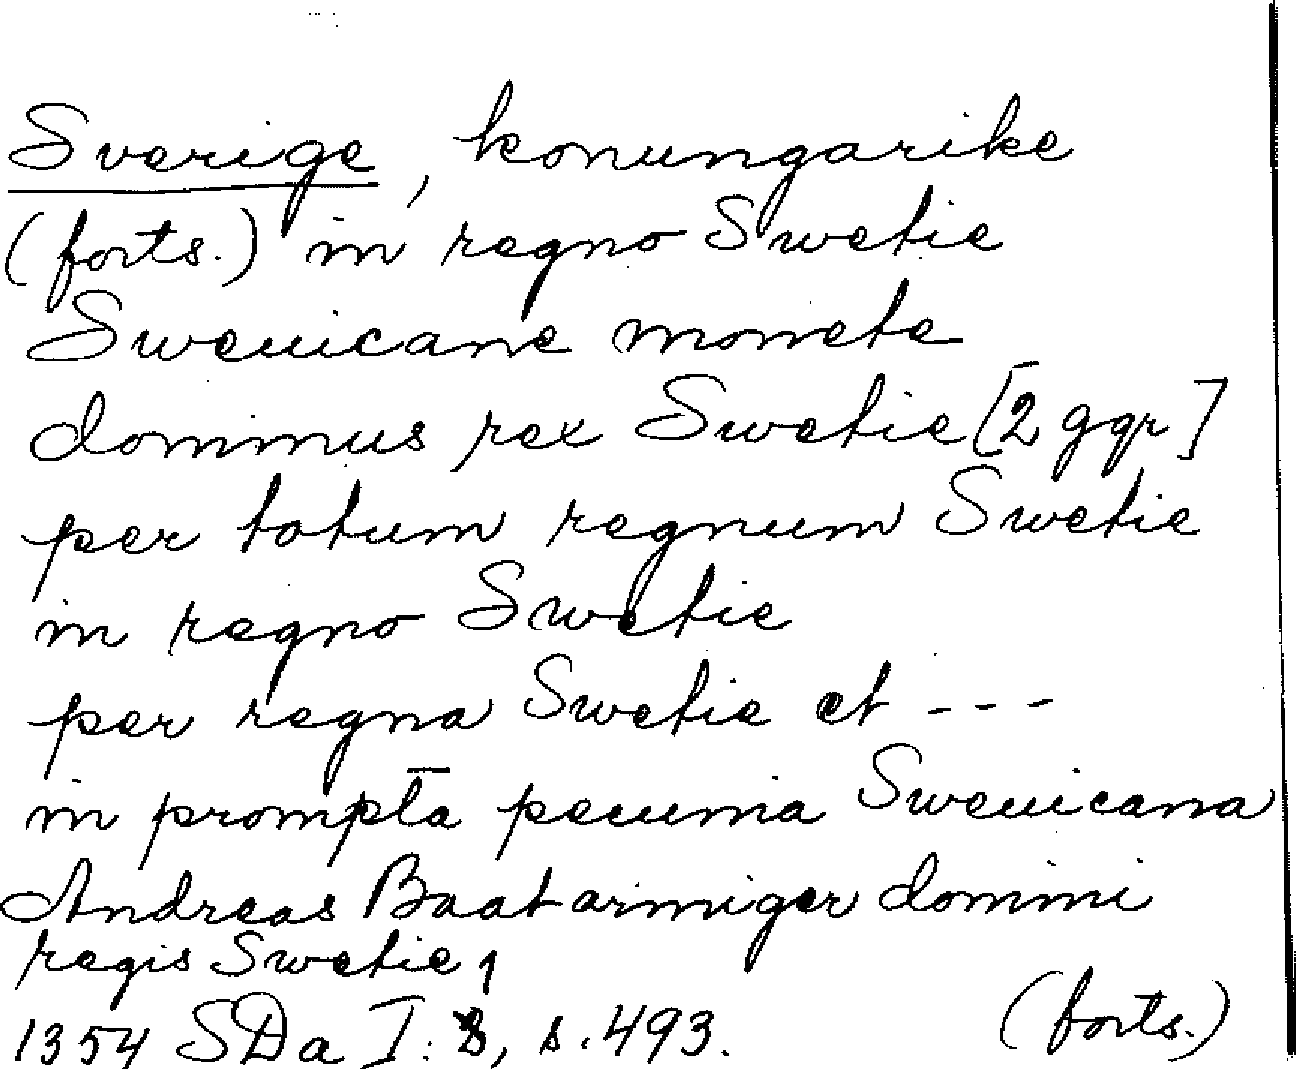 Sverige, konungarike
(forts.) in regno Swetie
Sweuicane monete
dominus rex Swetie [2 ggr]
per totum regnum Swetie
in regno Swetie
per regna Swetie et ---
in prompta pecunia Sweuicana
Andreas Baat armiger domini
regis Swetie,
1354 SDa I: 8, s. 493. (forts.)